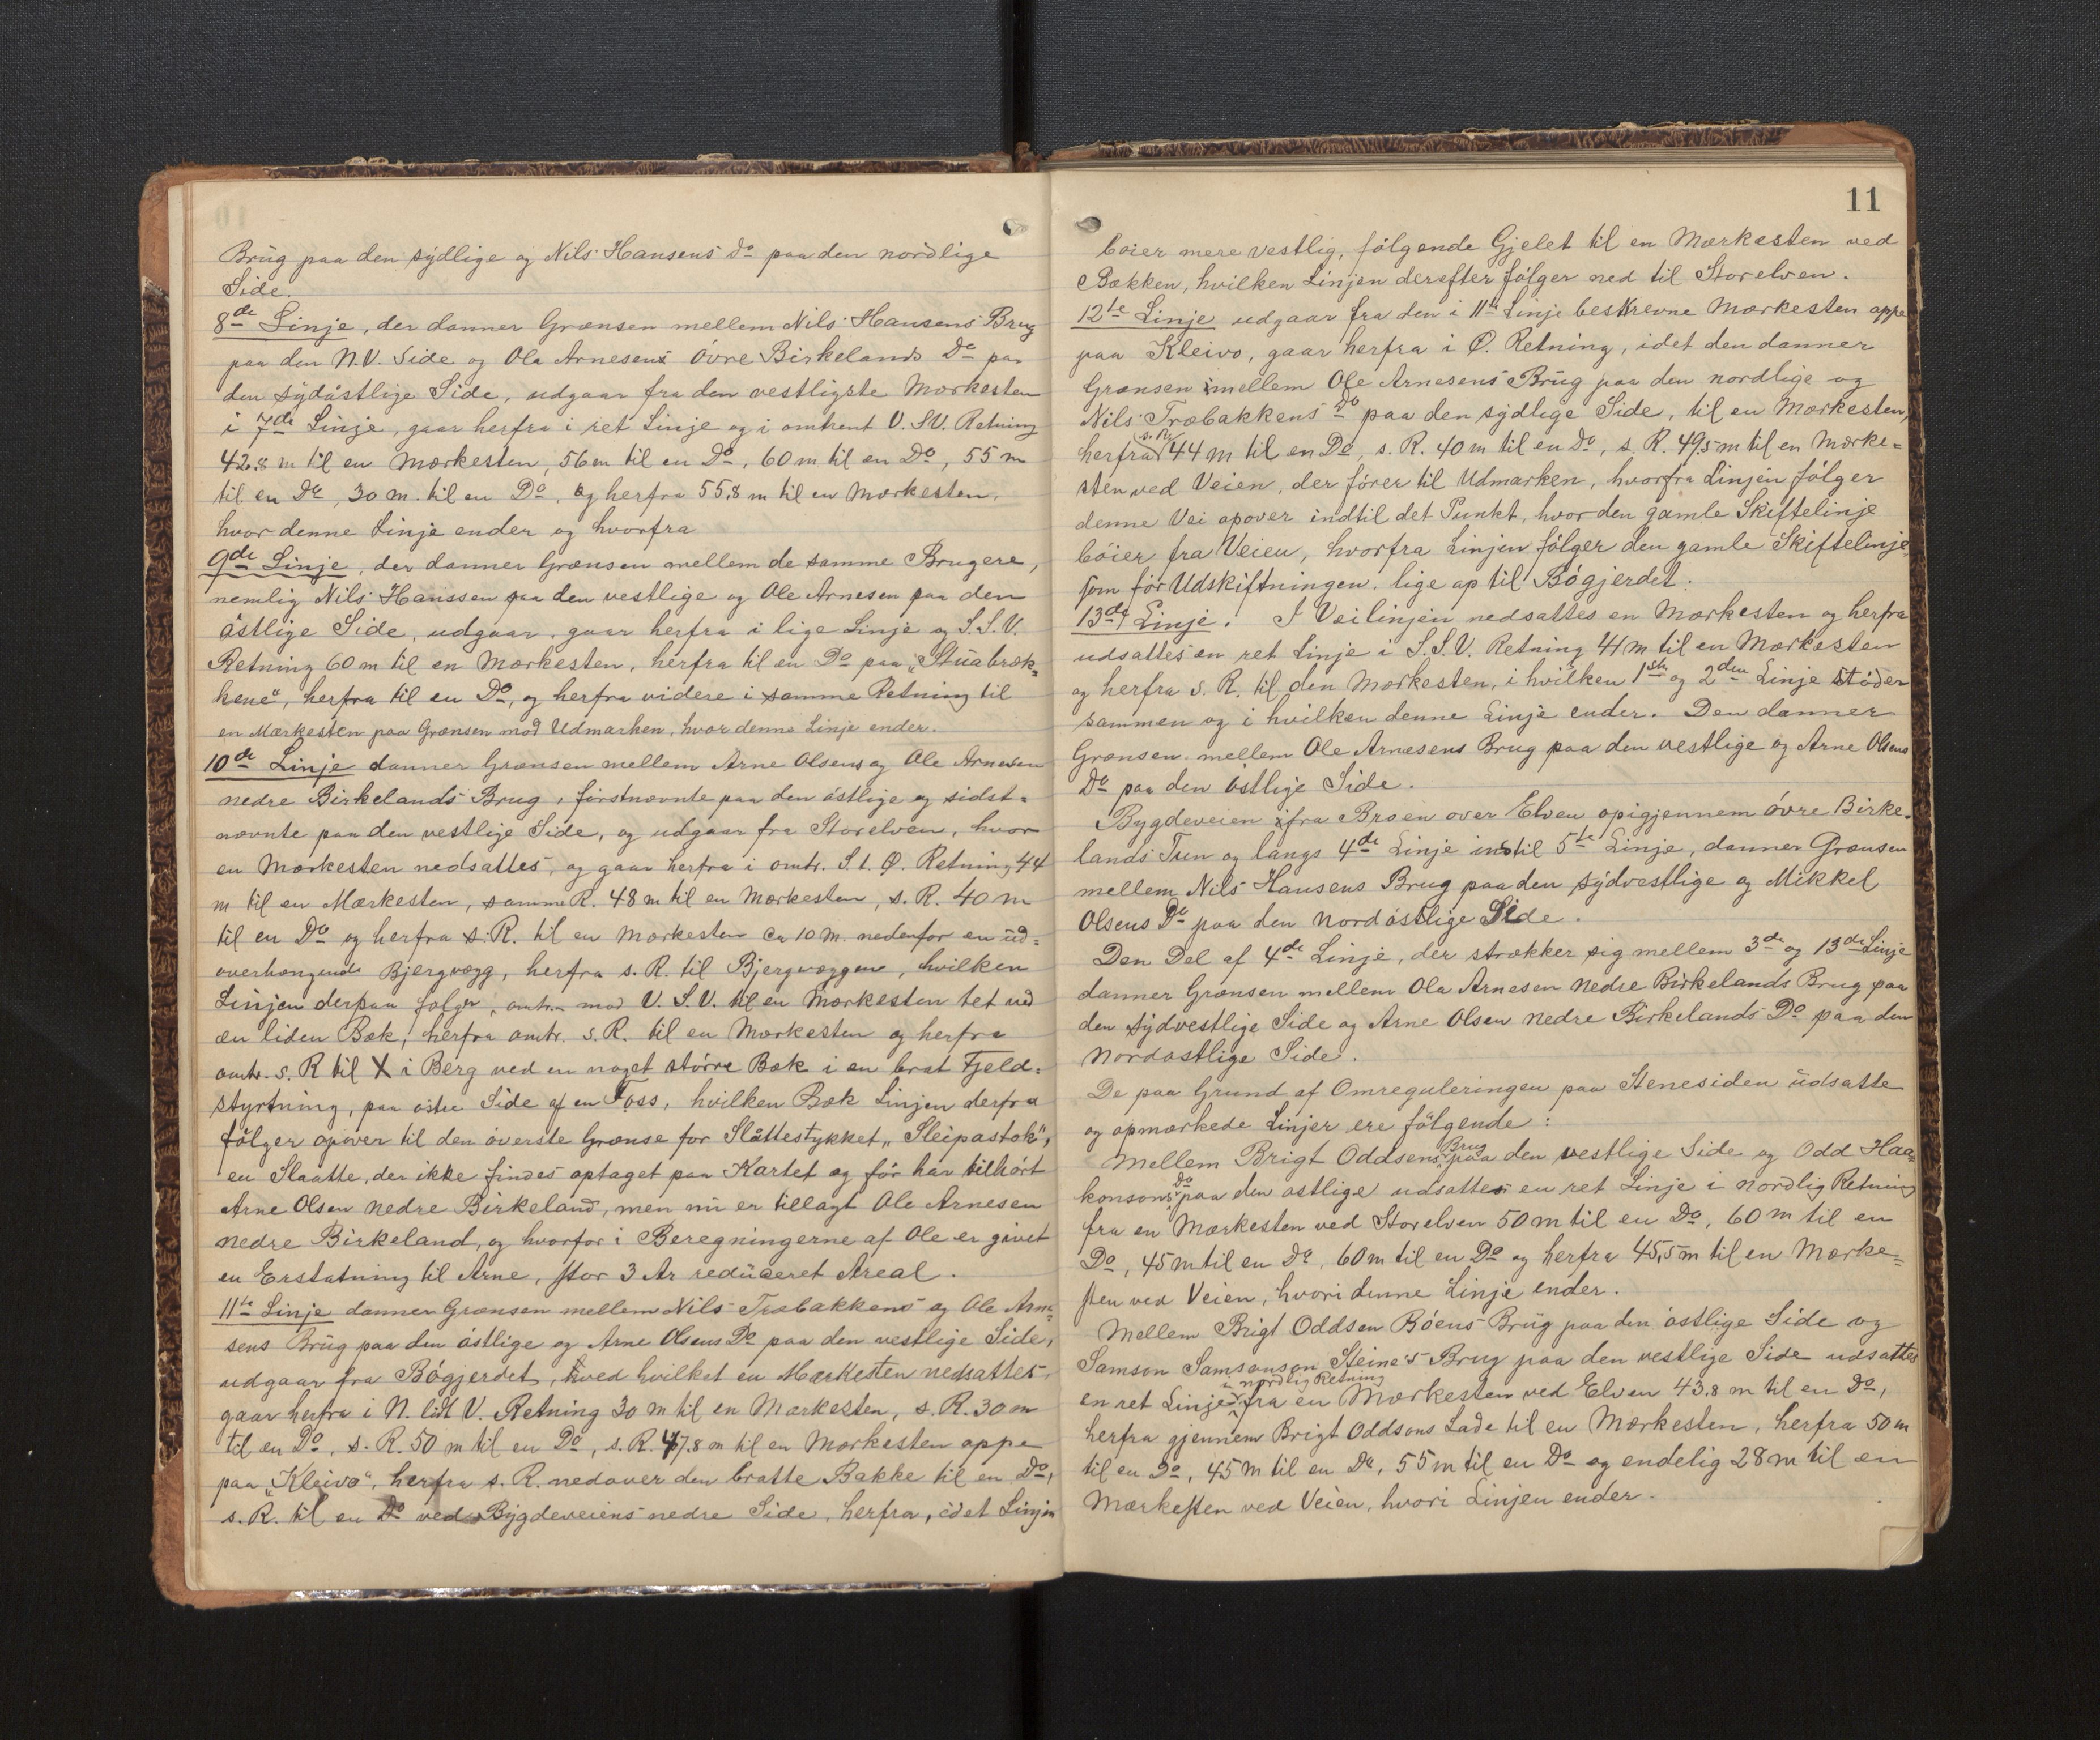 Brug paa den sydlige og Nils Hansens Do paa den nordlige
Side.
8de Linje, der danner Grænsen mellem Nils Hansens Brug
paa den N.V. Side og Ola Arnesens övre Birkelands Do paa
den sydöstlige Side, udgaar fra den vestligste Mærkesten
i 7de Linje, gaar herfra i ret Linje og i omtrent V.S.V. Retning
42.8 m til en Mærkesten, 56 m til en Do, 60 m til en Do, 55 m
til en Do, 30 m. til en Do, og herfra 55,8 m til en Mærkesten,
hvor denne Linje ender og hvorfra
9de Linje, der danner Grænsen mellem de samme Brugere,
nemlig Nils Hanssen paa den vestlige og Ole Arnesen paa den
östlige Side, udgaar, gaar herfra i lige Linje og S.S.V.
Retning 60 m til en Mærkesten, herfra til en Do paa „Stuabræk-
kene“, herfra til en Do, og herfra videre i samme Retning til
en Mærkesten paa Grænsen mod Udmarken, hvor denne Linje ender.
10de Linje danner Grænsen mellem Arne Olsens og Ole Arnesen
nedre Birkelands Brug, förstnævnte paa den östlige og sidst-
nævnte paa den vestlige Side, og udgaar fra Storelven, hvor
en Mærkesten nedsattes, og gaar herfra i omtr. S.t.Ø. Retning 44
m til en Mærkesten, samme R. 48 m til en Mærkesten, s. R. 40 m
til en Do og herfra s. R. til en Mærkesten ca 10 m. nedenfor en ud-
overhængende Bjergvægg, herfra s. R. til Bjergvæggen, hvilken
Linjen derpaa følger, omtr. mod V.S.V. til en Mærkesten tet ved
en liden Bæk, herfra omtr. s. R. til en Mærkesten og herfra
omtr. s. R til X i Berg ved en noget större Bæk i en brat Fjeld-
styrtning, paa östre Side af en Foss, hvilken Bæk Linjen derfra
fölger opover til den överste Grænse for Slåttestykket „Sleipastok“,
en Slaatte, der ikke findes optaget paa Kartet og för har tilhört
Arne Olsen nedre Birkeland, men nu er tillagt Ole Arnesen
nedre Birkeland, og hvorfor i Beregningerne af Ole er givet
en Erstatning til Arne, stor 3 Ar reduceret Areal.
11te Linje danner Grænsen mellem Nils Træbakkens og Ole Arne-
sens Brug paa den östlige og Arne Olsens Do paa den vestlige Side,
udgaar fra Bögjerdet, hved hvilket en Mærkesten nedsattes,
gaar herfra i N. lidt V. Retning 30 m til en Mærkesten, s. R. 30 m
til en Do, s. R. 50 m til en Do, s. R. 47.8 m til en Mærkesten oppe
paa „Kleivo“, herfra s. R. nedover den bratte Bakke til en Do,
s. R. til en Do ved Bygdeveiens nedre Side, herfra, idet Linjen
11
böier mere vestlig, fölgende Gjelet til en Mærkesten ved
Bækken, hvilken Linjen derefter fölger ned til Storelven.
12te Linje udgaar fra den i 11te Linje beskrevne Mærkesten oppe
paa Kleivo, gaar herfra i Ø. Retning, idet den danner
Grænsen mellem Ole Arnesens Brug paa den nordlige og
Nils Træbakkens Do paa den sydlige Side, til en Mærkesten,
herfra s. R. 44 m til en Do, s. R. 40 m til en Do, s. R. 49,5 m til en Mærke-
sten ved Veien, der förer til Udmarken, hvorfra Linjen fölger
denne Vei opover indtil det Punkt, hvor den gamle Skiftelinje
böier fra Veien, hvorfra Linjen fölger den gamle Skiftelinje,
som för Udskiftningen, lige op til Bögjerdet.
13de Linje. I Veilinjen nedsattes en Mærkesten og herfra
udsattes en ret Linje i S.S.V. Retning 41 m til en Mærkesten
og herfra s. R. til den Mærkesten, i hvilken 1ste og 2den Linje stöder
sammen og i hvilken denne Linje ender. Den danner
Grænsen mellem Ole Arnesens Brug paa den vestlige og Arne Olsens
Do paa den östlige Side.
Bygdeveien fra Broen over Elven opigjennem övre Birke-
lands Tun og langs 4de Linje indtil 5te Linje, danner Grænsen
mellem Nils Hansens Brug paa den sydvestlige og Mikkel
Olsens Do paa den nordöstlige Side.
Den Del af 4de Linje, der strækker sig mellem 3de og 13de Linje
danner Grænsen mellem Ola Arnesen nedre Birkelands Brug paa
den sydvestlige Side og Arne Olsen nedre Birkelands Do paa den
nordöstlige Side.
De paa Grund af Omreguleringen paa Stenesiden udsatte
og opmærkede Linjer ere fölgende:
Mellem Brigt Oddsens Brug paa den vestlige Side og Odd Haa-
konsons Do paa den östlige udsattes en ret Linje i nordlig Retning
fra en Mærkesten ved Storelven 50 m til en Do, 60 m til en
Do, 45 m til en Do, 60 m til en Do og herfra 45,5 m til en Mærke-
sten ved Veien, hvori denne Linje ender.
Mellem Brigt Oddsen Böens Brug paa den östlige Side og
Samson Samsonson Steine's Brug paa den vestlige Side udsattes
en ret Linje i nordlig Retning fra en Mærkesten ved Elven 43.8 m til en Do,
herfra gjennem Brigt Oddsons Lade til en Mærkesten, herfra 50 m
til en Do, 45 m til en Do, 55 m til en Do og endelig 28 m til en
Mærkesten ved Veien, hvori Linjen ender.